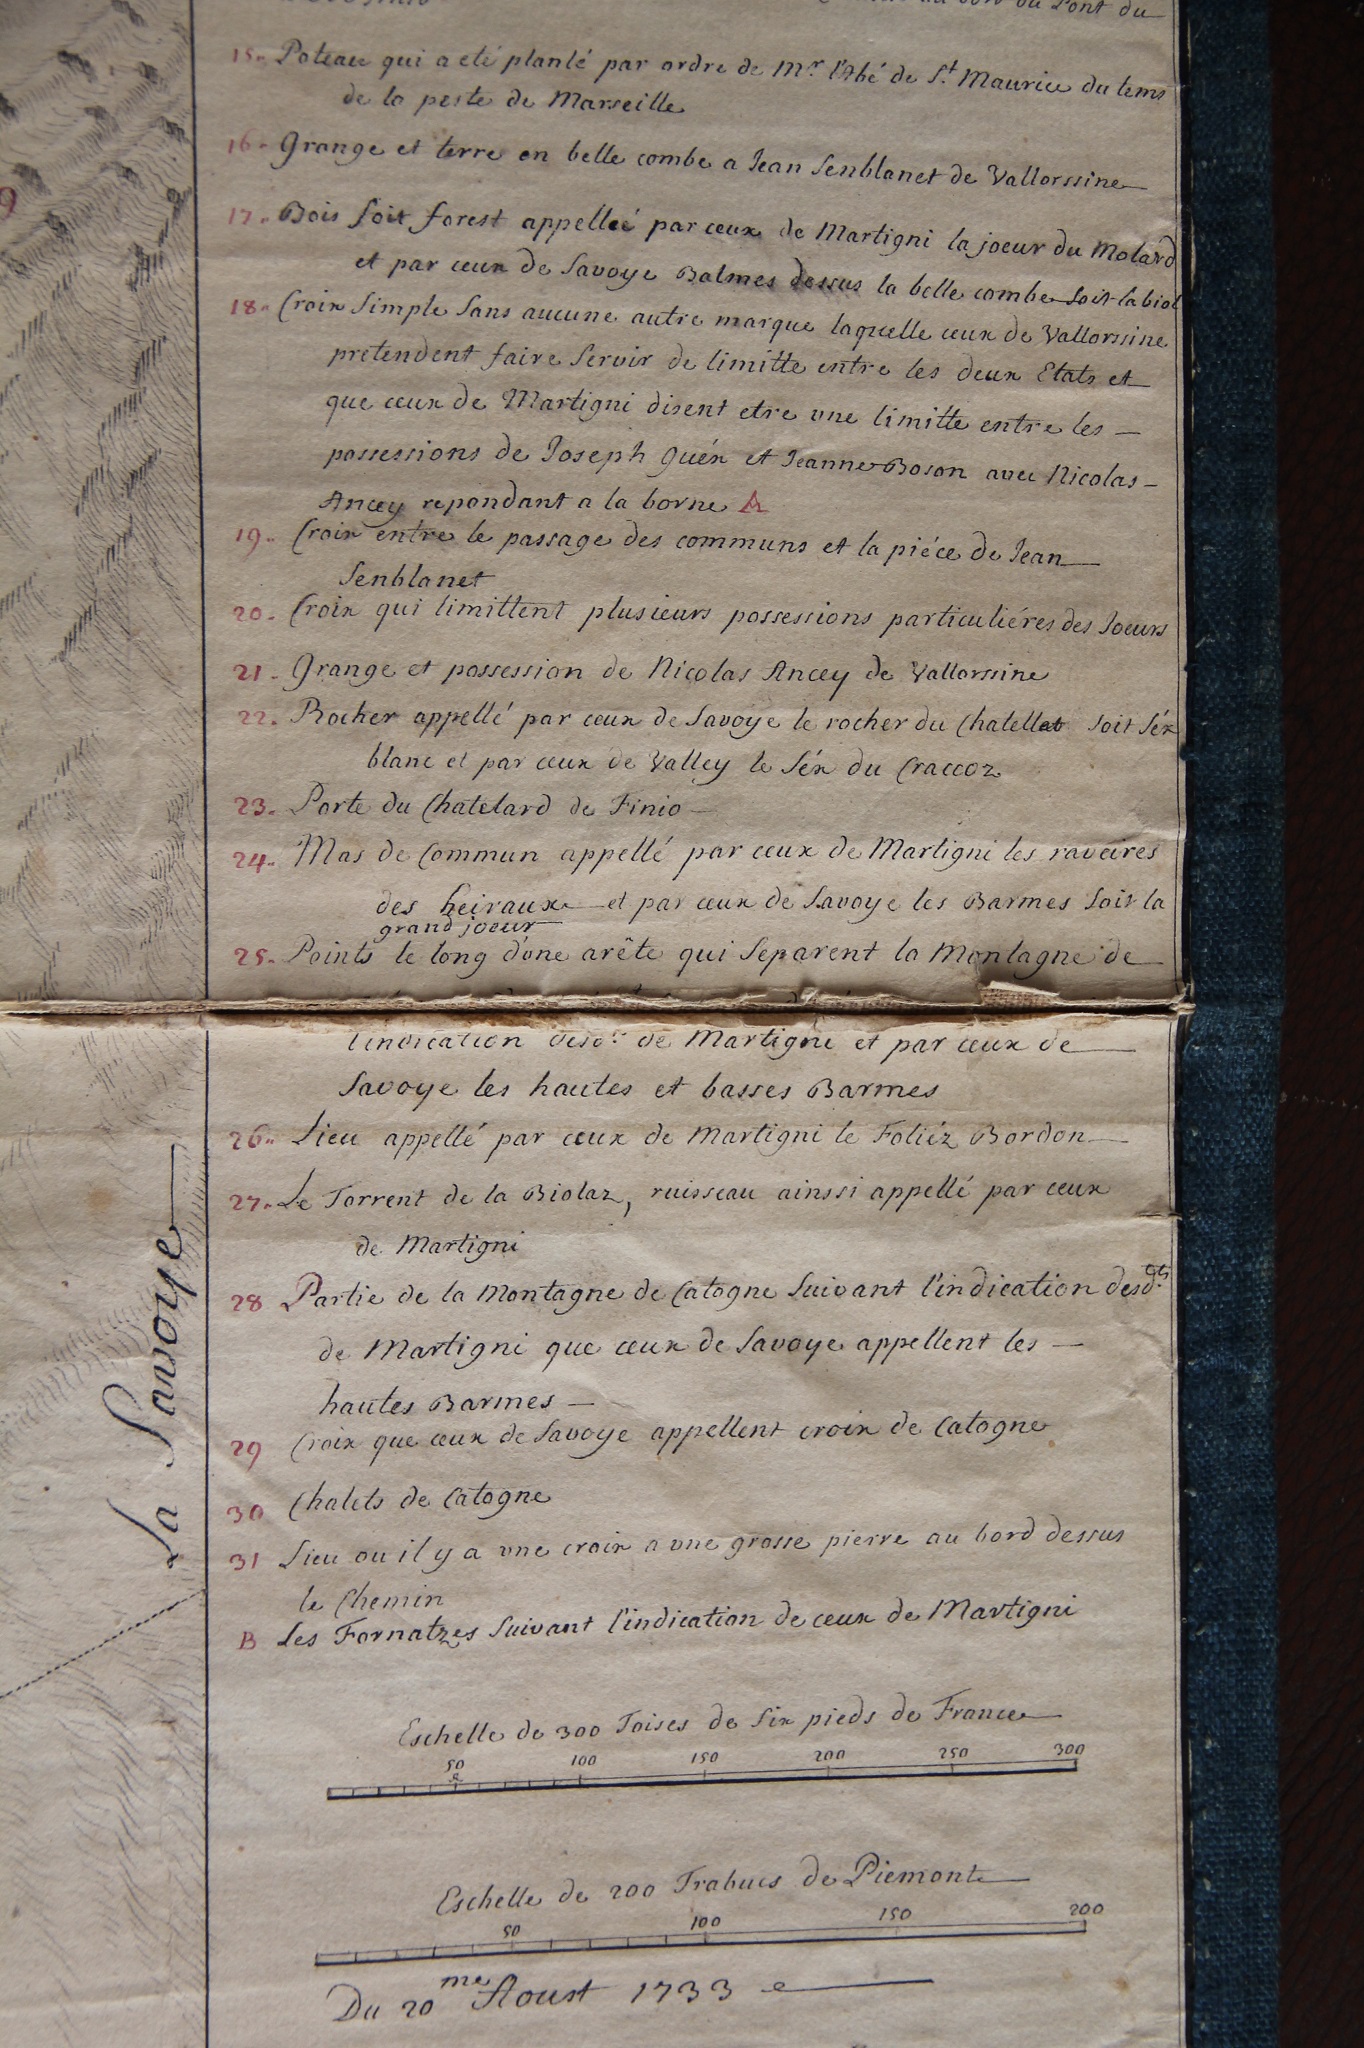 15. Poteau qui a eté planté par ordre de Mr. l'Abé de St. Maurice du tems
de la peste de Marseille
16. Grange et terre en belle combe a Jean Senblanet de Vallorssine
17. Bois soit forest appelleé par ceux de Martigni la joeur du Molard
et par ceux de Savoye Balmes dessus la belle combe soit la biol
18. Croix simple sans aucune autre marque laquelle ceux de Vallorssine
pretendent faire servir de limitte entre les deux Etats et
que ceux de Martigni disent etre une limitte entre les
possessions de Joseph Guéx et Jeanne Boson avec Nicolas
Ancey repondant a la borne A
19. Croix entre le passage des communs et la piéce de Jean
Senblanet
20. Croix qui limittent plusieurs possessions particuliéres des Joeurs
21. Grange et possession de Nicolas Ancey de Vallorssine
22. Rocher appellé par ceux de Savoye le rocher du Chatellat soit Séx
blanc et par ceux de Valley le Séx du Craccoz
23. Porte du Chatelard de Finio
24. Mas de Commun appellé par ceux de Martigni les raveires
des heiraux et par ceux de Savoye les Barmes soit la
grand joeur
25. Points le long d'une arête qui separent la Montagne de
l'indication desd.ts de Martigni et par ceux de
Savoye les hautes et basses Barmes
26. Lieu appellé par ceux de Martigni le Foliéz Bordon
27. Le Torrent de la Biolaz, ruisseau ainssi appellé par ceux
de Martigni
28 Partie de la Montagne de Catogne suivant l'indication desd.ts
de Martigni que ceux de Savoye appellent les
hautes Barmes
29 Croix que ceux de Savoye appellent croix de Catogne
30 Chalets de Catogne
31 Lieu ou il y a une croix a une grosse pierre au bord dessus
le Chemin
B Les Fornatzes suivant l'indication de ceux de Martigni
La Savoye
Eschelle de 300 Toises de six pieds de France
50 100 150 200 250 300
Eschelle de 200 Trabucs de Piemont
50 100 150 200
Du 20me Aoust 1733